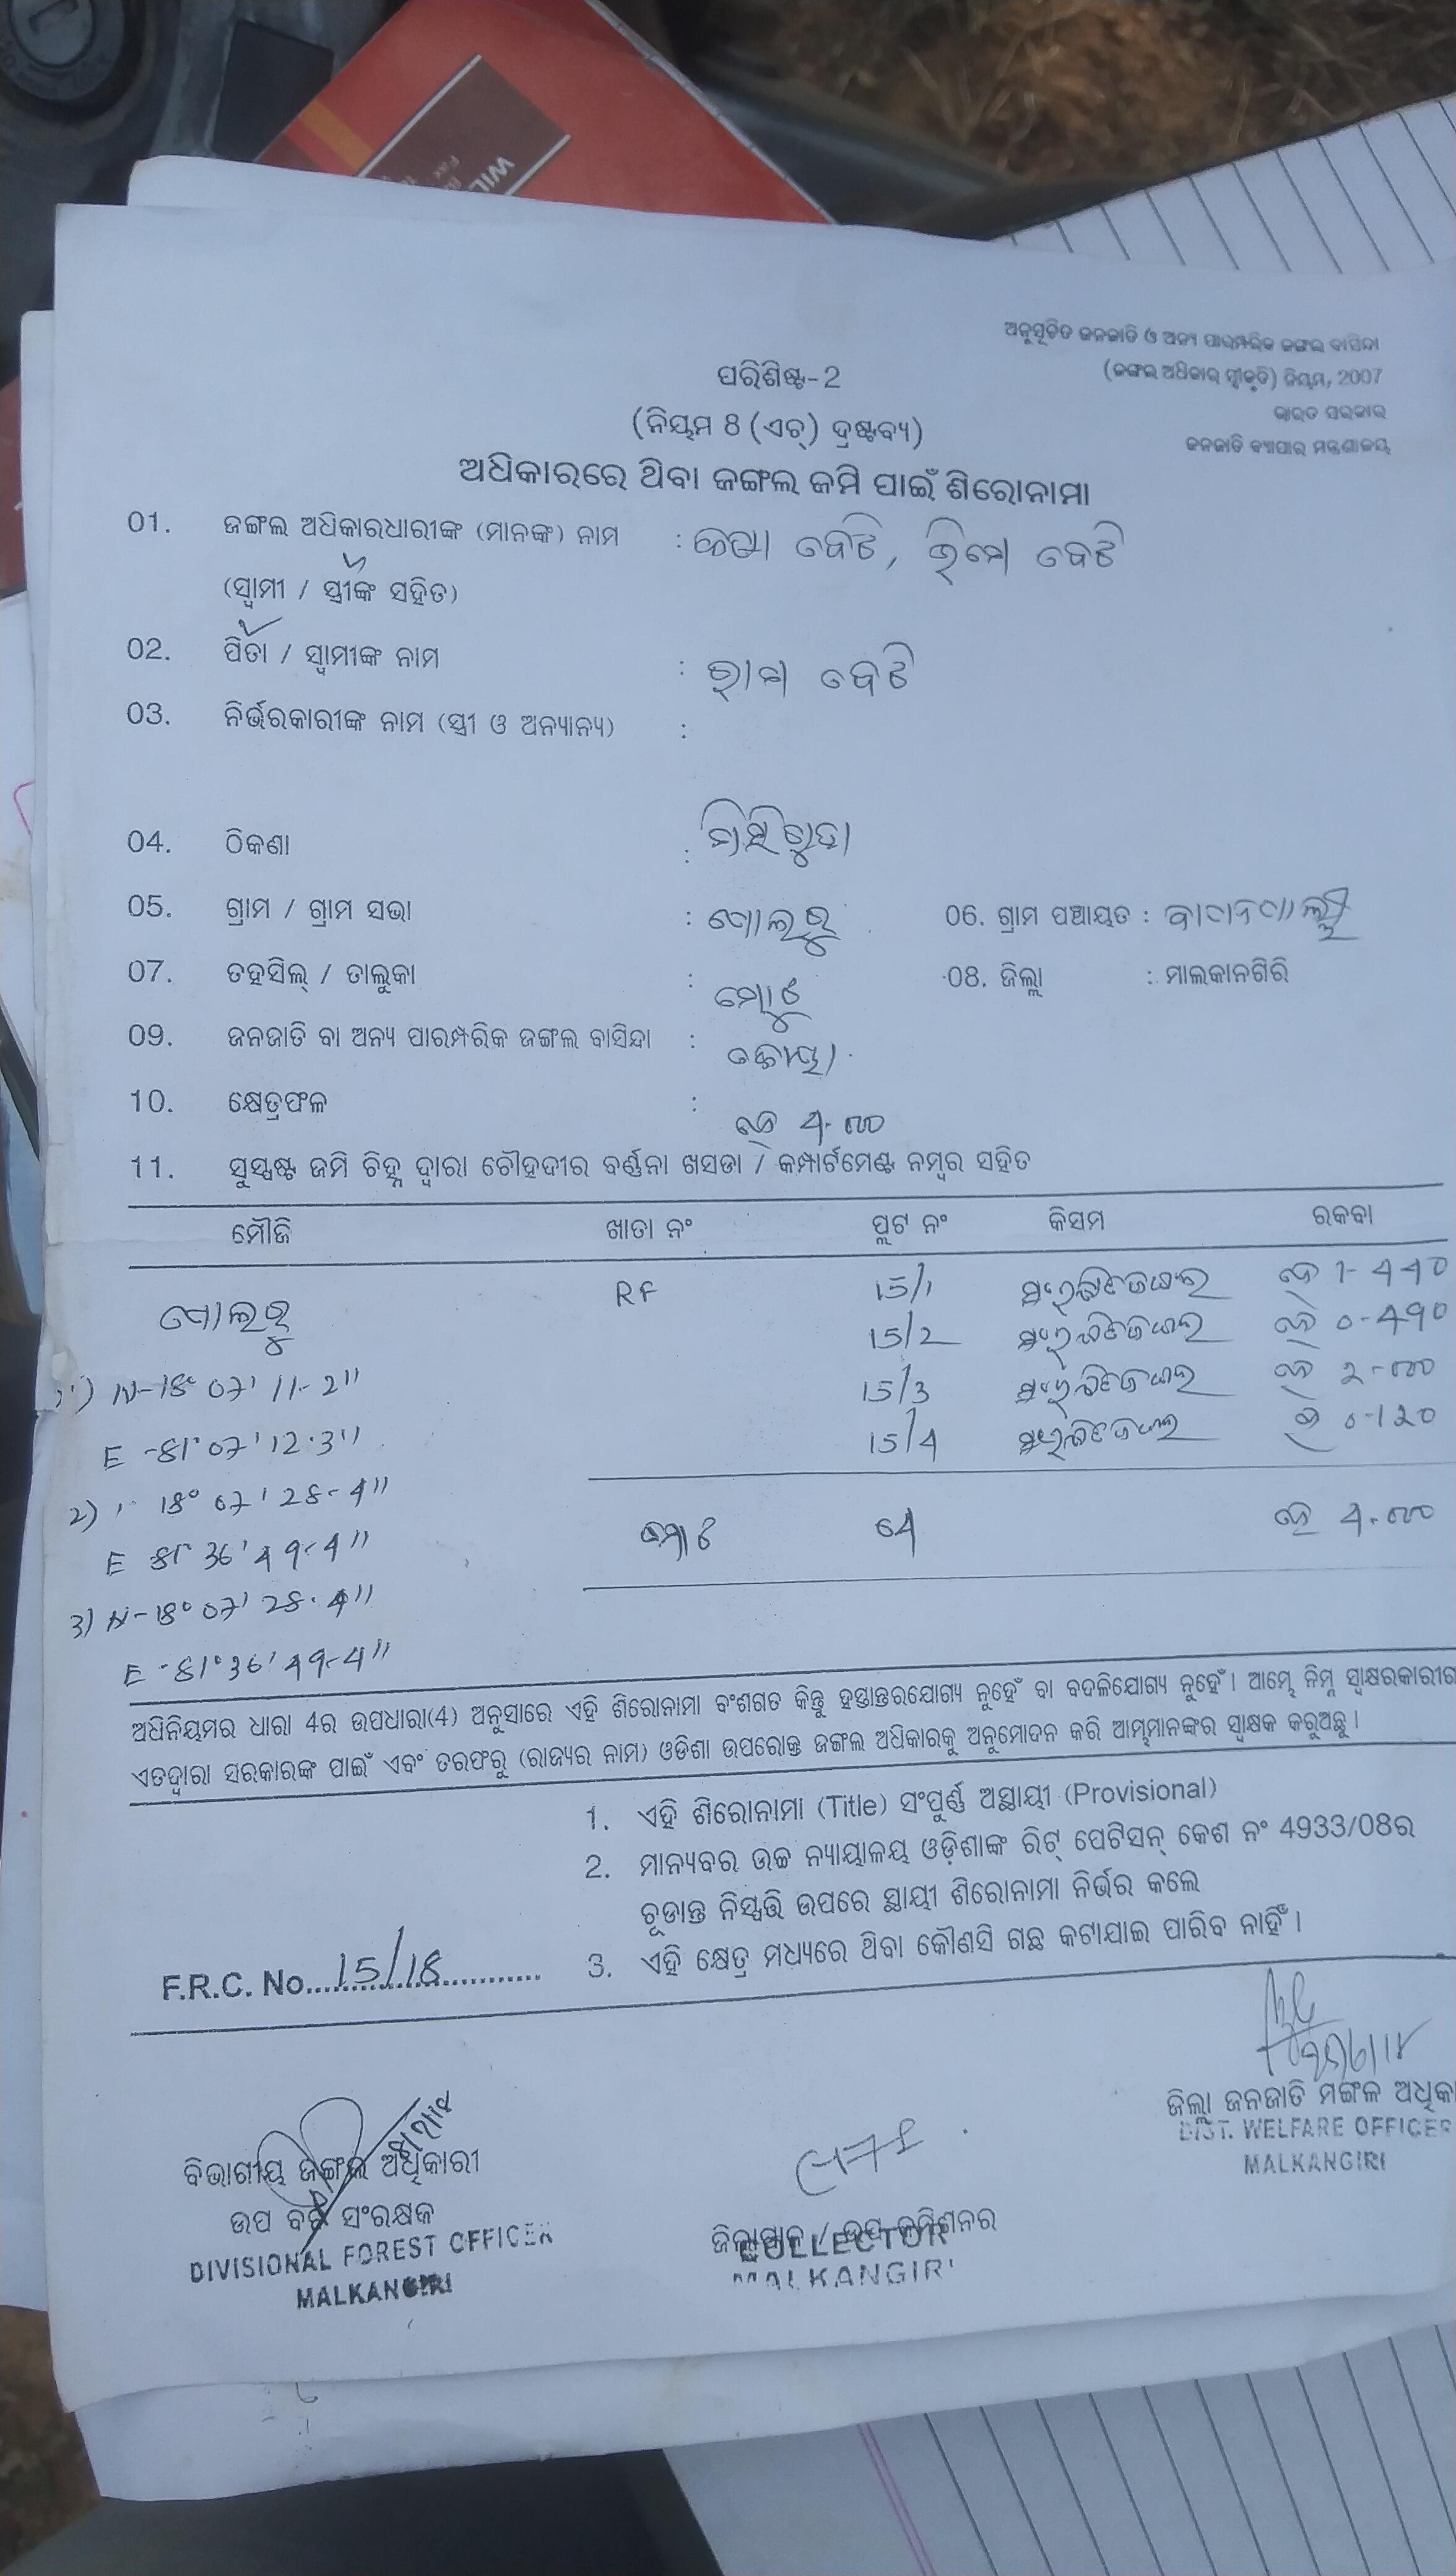 ଅନୁସୂଚିତ ଜନଜାତି ଓ ଅନ୍ୟ ପାରମ୍ପରିକ ଜଙ୍ଗଲ ବାସିନ୍ଦା
(ଜଙ୍ଗଲ ଅଧିକାର ସ୍ୱୀକୃତି) ନିୟମ, 2007
ଭାରତ ସରକାର
ଜନଜାତି ବ୍ୟାପାର ମନ୍ତ୍ରଣାଳୟ
ପରିଶିଷ୍ଟ-2
(ନିୟମ 8 (ଏଚ୍) ଦ୍ରଷ୍ଟବ୍ୟ)
ଅଧିକାରରେ ଥିବା ଜଙ୍ଗଲ ଜମି ପାଇଁ ଶିରୋନାମା
01. ଜଙ୍ଗଲ ଅଧିକାରଧାରୀଙ୍କ (ମାନଙ୍କ) ନାମ :
(ସ୍ୱାମୀ / ସ୍ତ୍ରୀଙ୍କ ସହିତ)
02. ପିତା / ସ୍ୱାମୀଙ୍କ ନାମ :
03. ନିର୍ଭରକାରୀଙ୍କ ନାମ (ସ୍ତ୍ରୀ ଓ ଅନ୍ୟାନ୍ୟ) :
04. ଠିକଣା :
05. ଗ୍ରାମ / ଗ୍ରାମ ସଭା : ଗୋଲରୁ 06. ଗ୍ରାମ ପଞ୍ଚାୟତ :
07. ତହସିଲ୍ / ତାଲୁକା : ମୋଟୁ 08. ଜିଲ୍ଲା : ମାଲକାନଗିରି
09. ଜନଜାତି ବା ଅନ୍ୟ ପାରମ୍ପରିକ ଜଙ୍ଗଲ ବାସିନ୍ଦା : କୋୟା
10. କ୍ଷେତ୍ରଫଳ : 4.00
11. ସୁସ୍ପଷ୍ଟ ଜମି ଚିହ୍ନ ଦ୍ୱାରା ଚୌହଦୀର ବର୍ଣ୍ଣନା ଖସଡା / କମ୍ପାର୍ଟମେଣ୍ଟ ନମ୍ବର ସହିତ
ମୌଜି ଖାତା ନଂ ପ୍ଲଟ ନଂ କିସମ ରକବା
ଗୋଲରୁ RF 15/1 ସଂରକ୍ଷିତ ଜଙ୍ଗଲ 1-440
15/2 ସଂରକ୍ଷିତ ଜଙ୍ଗଲ 0-490
1) N-18° 07' 11-2" 15/3 ସଂରକ୍ଷିତ ଜଙ୍ଗଲ 2-00
E -81° 07' 12.3" 15/4 ସଂରକ୍ଷିତ ଜଙ୍ଗଲ 0-120
2) 18° 07' 28-4"
E 81° 36' 49-4" ମୋଟ 4.00
3) N-18° 07' 28.4"
E -81° 36' 49-4"
ଅଧିନିୟମର ଧାରା 4ର ଉପଧାରା(4) ଅନୁସାରେ ଏହି ଶିରୋନାମା ବଂଶଗତ କିନ୍ତୁ ହସ୍ତାନ୍ତରଯୋଗ୍ୟ ନୁହେଁ ବା ବଦଳିଯୋଗ୍ୟ ନୁହେଁ । ଆମ୍ଭେ ନିମ୍ନ ସ୍ୱାକ୍ଷରକାରୀଗ
ଏତଦ୍ୱାରା ସରକାରଙ୍କ ପାଇଁ ଏବଂ ତରଫରୁ (ରାଜ୍ୟର ନାମ) ଓଡିଶା ଉପରୋକ୍ତ ଜଙ୍ଗଲ ଅଧିକାରକୁ ଅନୁମୋଦନ କରି ଆମ୍ଭମାନଙ୍କର ସ୍ୱାକ୍ଷକ କରୁଅଛୁ ।
1. ଏହି ଶିରୋନାମା (Title) ସଂପୁର୍ଣ୍ଣ ଅସ୍ଥାୟୀ (Provisional)
2. ମାନ୍ୟବର ଉଚ୍ଚ ନ୍ୟାୟାଳୟ ଓଡ଼ିଶାଙ୍କ ରିଟ୍ ପେଟିସନ୍ କେଶ ନଂ 4933/08ର
ଚୂଡାନ୍ତ ନିସ୍ପତ୍ତି ଉପରେ ସ୍ଥାୟୀ ଶିରୋନାମା ନିର୍ଭର କଲେ
3. ଏହି କ୍ଷେତ୍ର ମଧ୍ୟରେ ଥିବା କୌଣସି ଗଛ କଟାଯାଇ ପାରିବ ନାହିଁ ।
F.R.C. No. 15/18
ଜିଲ୍ଲା ଜନଜାତି ମଙ୍ଗଳ ଅଧିକା
DIST. WELFARE OFFICER
MALKANGIRI
ବିଭାଗୀୟ ଜଙ୍ଗଲ ଅଧିକାରୀ
ଉପ ବନ ସଂରକ୍ଷକ
DIVISIONAL FOREST OFFICER
MALKANGIRI
ଜିଲ୍ଲାପାଳ / ଉପ କମିଶନର
COLLECTOR
MALKANGIRI